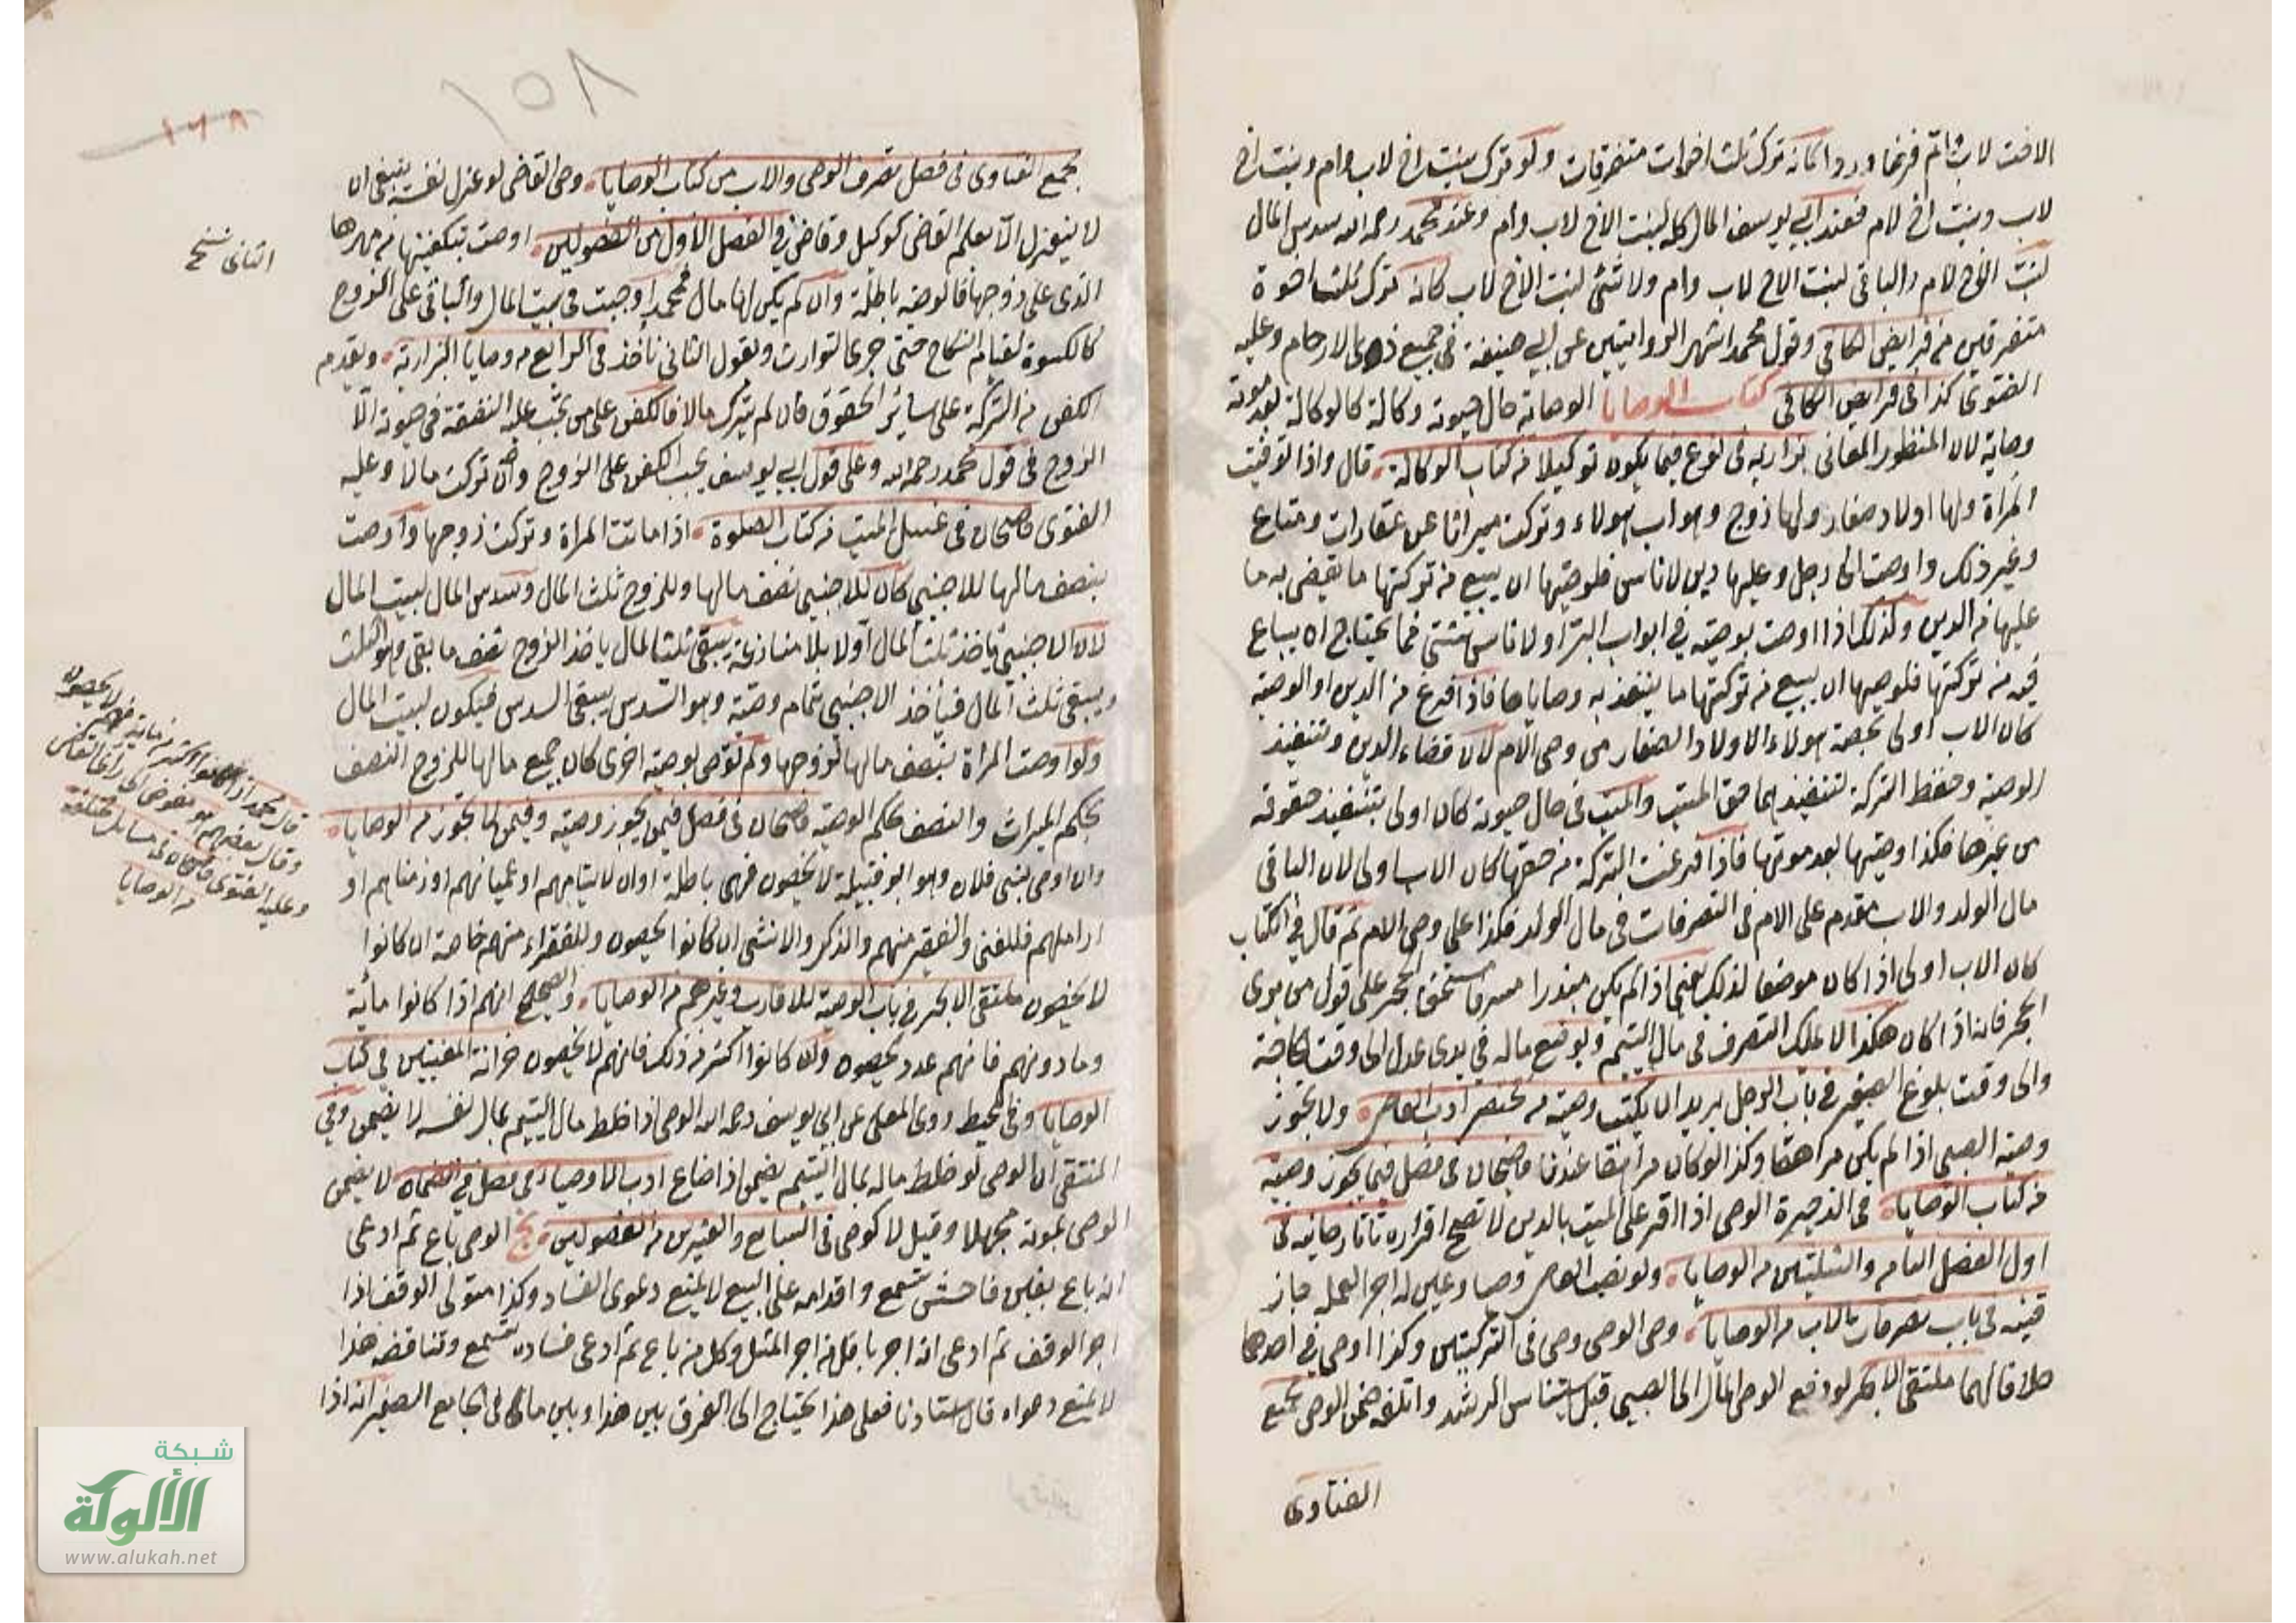 الاخت لاب ثم فرضا وردا كانه ترك ثلث اخوات متفرقات ولو ترك بنت اخ لاب وام وبنت اخ
لاب وبنت اخ لام فعند ابي يوسف المال كله لبنت الاخ لاب وام وعند محمد رحمه الله سدس المال
لبنت الاخ لام والباقي لبنت الاخ لاب وام ولا شئ لبنت الاخ لاب كانه ترك ثلث اخوة
متفرقين من فرايض الكافي وقول محمد اشهر الروايتين عن ابي حنيفة في جميع ذوى الارحام وعليه
الفتوى كذا في فرايض الكافي كتاب الوصايا الوصاية حال حيوته وكالة كالوكالة بعد موته
وصاية لان المنظور المعاني بزازيه في نوع فيما يكون توكيلا من كتاب الوكالة قال واذا توفيت
المرأة ولها اولاد صغار ولها زوج وهو اب هولاء وتركت ميراثا من عقارات ومتاع
وغير ذلك واوصت الى رجل وعليها دين لاناس فلوصيها ان يبيع من تركتها ما يقضى به ما
عليها من الدين وكذلك اذا اوصت بوصية في ابواب البر او لاناس شتى فما يحتاج ان يباع
فيه من تركتها فلوصيها ان يبيع من تركتها ما ينفذ به وصاياها فاذا فرغ من الدين او الوصية
كان الاب اولى بحصة هولاء الاولاد الصغار من وصى الام لان قضاء الدين وتنفيذ
الوصية وحفظ التركة لتنفيذها حق الميت والميت في حال حيوته كان اولى بتنفيذ حقوقه
من غيرها فكذا وصيها بعد موتها فاذا فرغت التركة من حقها كان الاب اولى لان الباقي
مال الولد والاب مقدم على الام في التصرفات في مال الولد فكذا على وصى الام ثم قال في الكتاب
كان الاب اولى اذا كان موضعا لذلك يعني اذا لم يكن مبذرا مسرفا مستحقا للحجر على قول من يرى
الحجر فانه اذا كان هكذا لا يملك التصرف في مال اليتيم ويوضع ماله في يدى عدل الى وقت الحاجة
والى وقت بلوغ الصغير في باب الرجل يريد ان يكتب وصيته من مختصر ادب القاضى ولا يجوز
وصية الصبى اذا لم يكن مراهقا وكذا لو كان مراهقا عندنا قاضيخان في فصل فيمن يجوز وصيته
من كتاب الوصايا في الذخيرة الوصى اذا اقر على الميت بالدين لا تصح اقراره تاتارخانيه في
اول الفصل الثامن والثلثين من الوصايا ولو نصب القاضى وصيا وعين له اجر العمل جاز
قنيه في باب تصرفات الاب من الوصايا وصى الوصى وصى في التركتين وكذا اوصى في احدهما
خلافا لهما ملتقى الابحر لو دفع الوصى المال الى الصبى قبل استيناس الرشد واتلفه ضمن الوصى مجمع
الفتاوى
١٥٨
١٦٨
مجمع الفتاوى في فصل تصرف الوصى والاب من كتاب الوصايا وصى القاضى لو عزل نفسه ينبغى ان
لا ينعزل الا بعلم القاضى كوكيل وقاض في الفصل الاول من الفصولين اوصت بتكفينها من مهرها
الذى على زوجها فالوصية باطلة وان لم يكن لها مال محمد اوجبت في بيت المال والثاني على الزوج
كالكسوة لقيام النكاح حتى جرى التوارث وبقول الثاني نأخذ في الرابع من وصايا البزازية ويقدم
الكفن من التركة على سائر الحقوق فان لم يترك مالا فالكفن على من تجب عليه النفقة في حيوته الا
الزوج في قول محمد رحمه الله وعلى قول ابي يوسف يجب الكفن على الزوج وان تركت مالا وعليه
الفتوى قاضيخان في غسل الميت من كتاب الصلوة اذا ماتت المرأة وتركت زوجها واوصت
بنصف مالها للاجنبى كان للاجنبى نصف مالها وللزوج ثلث المال وسدس المال لبيت المال
لان الاجنبى يأخذ ثلث المال اولا بلا منازعة يبقى ثلثا المال يأخذ الزوج نصف ما بقى وهو الثلث
ويبقى ثلث المال فيأخذ الاجنبى تمام وصيته وهو السدس يبقى السدس فيكون لبيت المال
ولو اوصت المرأة بنصف مالها لزوجها ولم توص بوصية اخرى كان جميع مالها للزوج النصف
بحكم الميراث والنصف بحكم الوصية قاضيخان في فصل فيمن يجوز وصيته وفيمن لا يجوز من الوصايا
وان اوصى لبنى فلان وهو ابو قبيلة لا يحصون فهى باطلة وان لايتامهم او عميانهم او زمناهم او
اراملهم فللغنى والفقير منهم والذكر والانثى ان كانوا يحصون وللفقراء منهم خاصة ان كانوا
لا يحصون ملتقى الابحر في باب الوصية للاقارب وغيرهم من الوصايا والصحيح انهم اذا كانوا مائة
وما دونهم فانهم عدد يحصون وان كانوا اكثر من ذلك فانهم لا يحصون خزانة المفتيين في كتاب
الوصايا وفي المحيط روى المعلى عن ابي يوسف رحمه الله الوصى اذا خلط مال اليتيم بمال نفسه لا يضمن وفي
المنتقى ان الوصى لو خلط ماله بمال اليتيم يضمن اذا ضاع ادب الاوصياء في فصل في الضمان لا يضمن
الوصى بموته مجهلا وقيل لا كوصى في السابع والعشرين من الفصولين الوصى باع ثم ادعى
انه باع بغبن فاحش تسمع واقدامه على البيع لا يمنع دعوى الفساد وكذا متولى الوقف اذا
اجر الوقف ثم ادعى انه اجر باقل من اجر المثل وكل من باع ثم ادعى فساده تسمع وتناقضه هذا
لا يمنع دعواه قال استادنا فعلى هذا يحتاج الى الفرق بين هذا وبين ما في الجامع الصغير انه اذا
قال محمد اذا كانوا اكثر من مائة فهم لا يحصون
وقال بعضهم هو مفوض الى راى القاضى
وعليه الفتوى قاضيخان في مسايل مختلفة
من الوصايا
شبكة
الألوكة
www.alukah.net